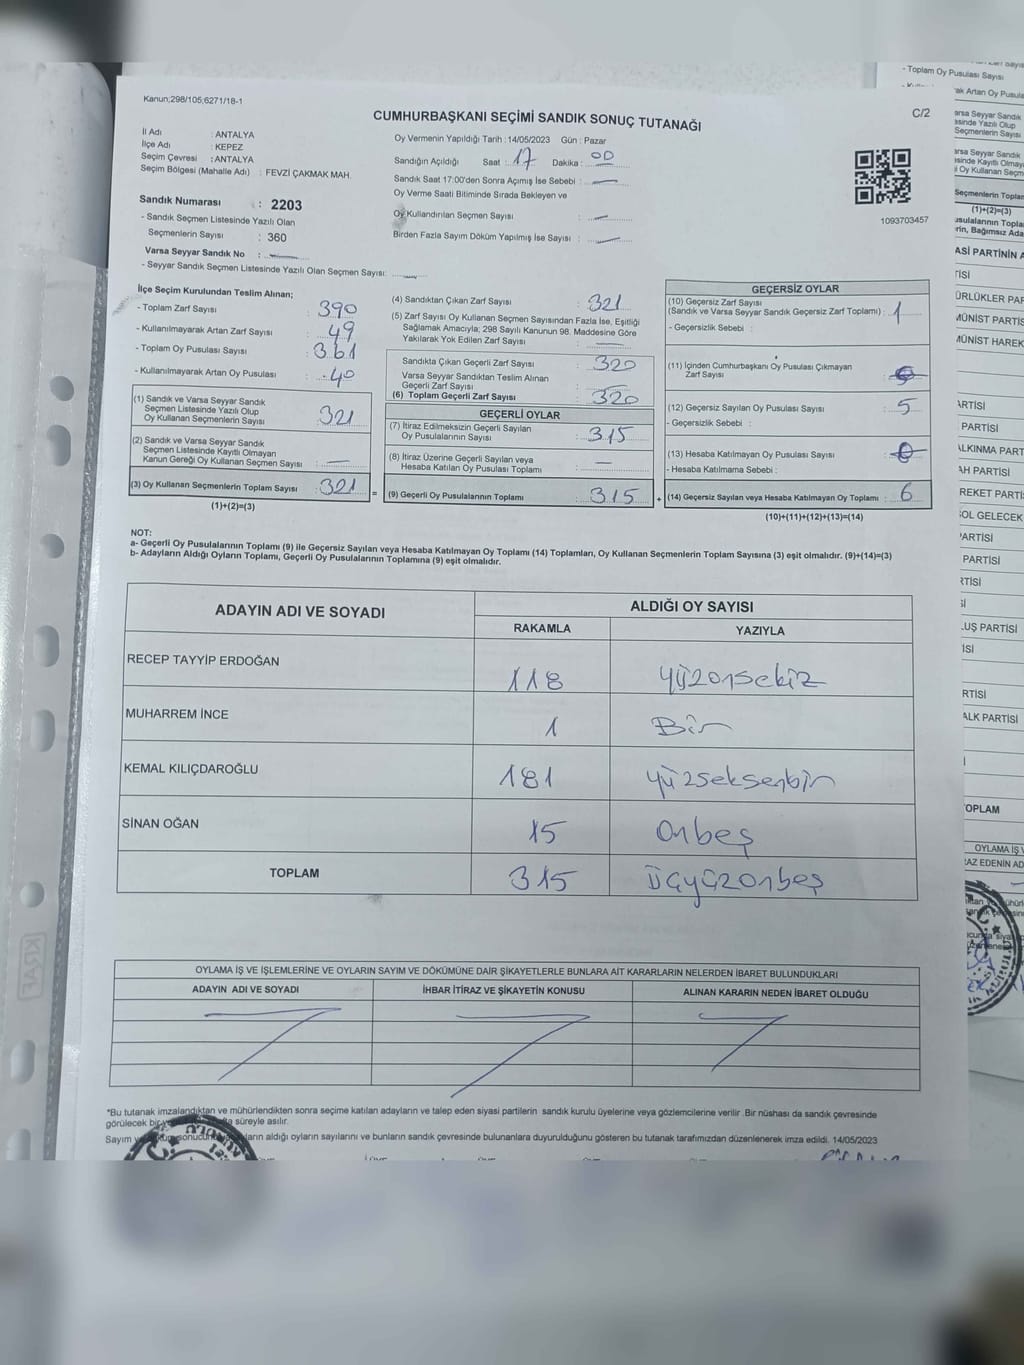 Kanun;298/105;6271/18-1
C/2
CUMHURBAŞKANI SEÇİMİ SANDIK SONUÇ TUTANAĞI
İl Adı : ANTALYA
İlçe Adı : KEPEZ
Seçim Çevresi : ANTALYA
Seçim Bölgesi (Mahalle Adı) : FEVZİ ÇAKMAK MAH.
Sandık Numarası : 2203
- Sandık Seçmen Listesinde Yazılı Olan
Seçmenlerin Sayısı : 360
Varsa Seyyar Sandık No :
- Seyyar Sandık Seçmen Listesinde Yazılı Olan Seçmen Sayısı:
Oy Vermenin Yapıldığı Tarih : 14/05/2023 Gün : Pazar
Sandığın Açıldığı Saat : 17 Dakika : 00
Sandık Saat 17:00'den Sonra Açımış İse Sebebi : —
Oy Verme Saati Bitiminde Sırada Bekleyen ve
Oy Kullandırılan Seçmen Sayısı : —
Birden Fazla Sayım Döküm Yapılmış İse Sayısı : —
1093703457
İlçe Seçim Kurulundan Teslim Alınan;
- Toplam Zarf Sayısı : 390
- Kullanılmayarak Artan Zarf Sayısı : 49
- Toplam Oy Pusulası Sayısı : 361
- Kullanılmayarak Artan Oy Pusulası : 40
(1) Sandık ve Varsa Seyyar Sandık
Seçmen Listesinde Yazılı Olup
Oy Kullanan Seçmenlerin Sayısı : 321
(2) Sandık ve Varsa Seyyar Sandık
Seçmen Listesinde Kayıtlı Olmayan
Kanun Gereği Oy Kullanan Seçmen Sayısı : —
(3) Oy Kullanan Seçmenlerin Toplam Sayısı : 321
(1)+(2)=(3)
(4) Sandıktan Çıkan Zarf Sayısı : 321
(5) Zarf Sayısı Oy Kullanan Seçmen Sayısından Fazla İse, Eşitliği
Sağlamak Amacıyla; 298 Sayılı Kanunun 98. Maddesine Göre
Yakılarak Yok Edilen Zarf Sayısı : —
Sandıkta Çıkan Geçerli Zarf Sayısı : 320
Varsa Seyyar Sandıktan Teslim Alınan
Geçerli Zarf Sayısı : —
(6) Toplam Geçerli Zarf Sayısı : 320
GEÇERLİ OYLAR
(7) İtiraz Edilmeksizin Geçerli Sayılan
Oy Pusulalarının Sayısı : 315
(8) İtiraz Üzerine Geçerli Sayılan veya
Hesaba Katılan Oy Pusulası Toplamı : —
= (9) Geçerli Oy Pusulalarının Toplamı : 315
GEÇERSİZ OYLAR
(10) Geçersiz Zarf Sayısı
(Sandık ve Varsa Seyyar Sandık Geçersiz Zarf Toplamı) : 1
- Geçersizlik Sebebi :
(11) İçinden Cumhurbaşkanı Oy Pusulası Çıkmayan
Zarf Sayısı :
(12) Geçersiz Sayılan Oy Pusulası Sayısı : 5
- Geçersizlik Sebebi :
(13) Hesaba Katılmayan Oy Pusulası Sayısı :
- Hesaba Katılmama Sebebi :
+ (14) Geçersiz Sayılan veya Hesaba Katılmayan Oy Toplamı : 6
(10)+(11)+(12)+(13)=(14)
NOT:
a- Geçerli Oy Pusulalarının Toplamı (9) ile Geçersiz Sayılan veya Hesaba Katılmayan Oy Toplamı (14) Toplamları, Oy Kullanan Seçmenlerin Toplam Sayısına (3) eşit olmalıdır. (9)+(14)=(3)
b- Adayların Aldığı Oyların Toplamı, Geçerli Oy Pusulalarının Toplamına (9) eşit olmalıdır.
ADAYIN ADI VE SOYADI ALDIĞI OY SAYISI
RAKAMLA YAZIYLA
RECEP TAYYİP ERDOĞAN 118 yüzonsekiz
MUHARREM İNCE 1 Bir
KEMAL KILIÇDAROĞLU 181 yüzseksenbir
SİNAN OĞAN 15 onbeş
TOPLAM 315 üçyüzonbeş
OYLAMA İŞ VE İŞLEMLERİNE VE OYLARIN SAYIM VE DÖKÜMÜNE DAİR ŞİKAYETLERLE BUNLARA AİT KARARLARIN NELERDEN İBARET BULUNDUKLARI
ADAYIN ADI VE SOYADI İHBAR İTİRAZ VE ŞİKAYETİN KONUSU ALINAN KARARIN NEDEN İBARET OLDUĞU
*Bu tutanak imzalandıktan ve mühürlendikten sonra seçime katılan adayların ve talep eden siyasi partilerin sandık kurulu üyelerine veya gözlemcilerine verilir .Bir nüshası da sandık çevresinde
görülecek bir süreyle asılır.
Sayım aldığı oyların sayılarını ve bunların sandık çevresinde bulunanlara duyurulduğunu gösteren bu tutanak tarafımızdan düzenlenerek imza edildi. 14/05/2023
KRAF
- Toplam Oy Pusulası Sayısı
Artan Oy
Varsa Seyyar Sandık
Yazılı Olup
Seçmenlerin Sayısı
(1)+(2)=(3)
PARTİSİ
PARTİSİ
HAREKET
OYLAMA İŞ